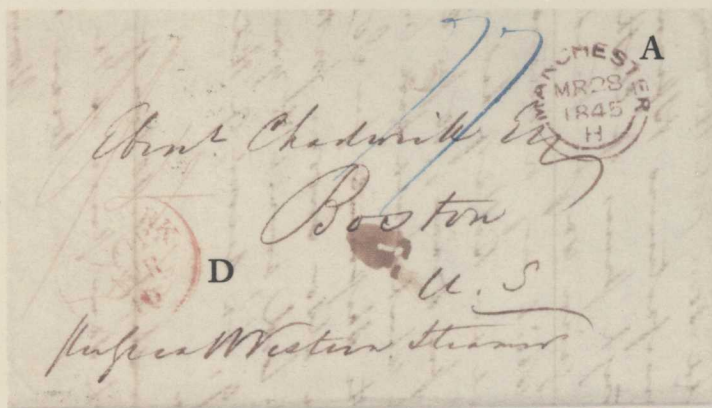 A
MANCHESTER
MR28
1845
H
Ebenr Chadwick Esq
Boston
D
U.S
per Great Western Steamer